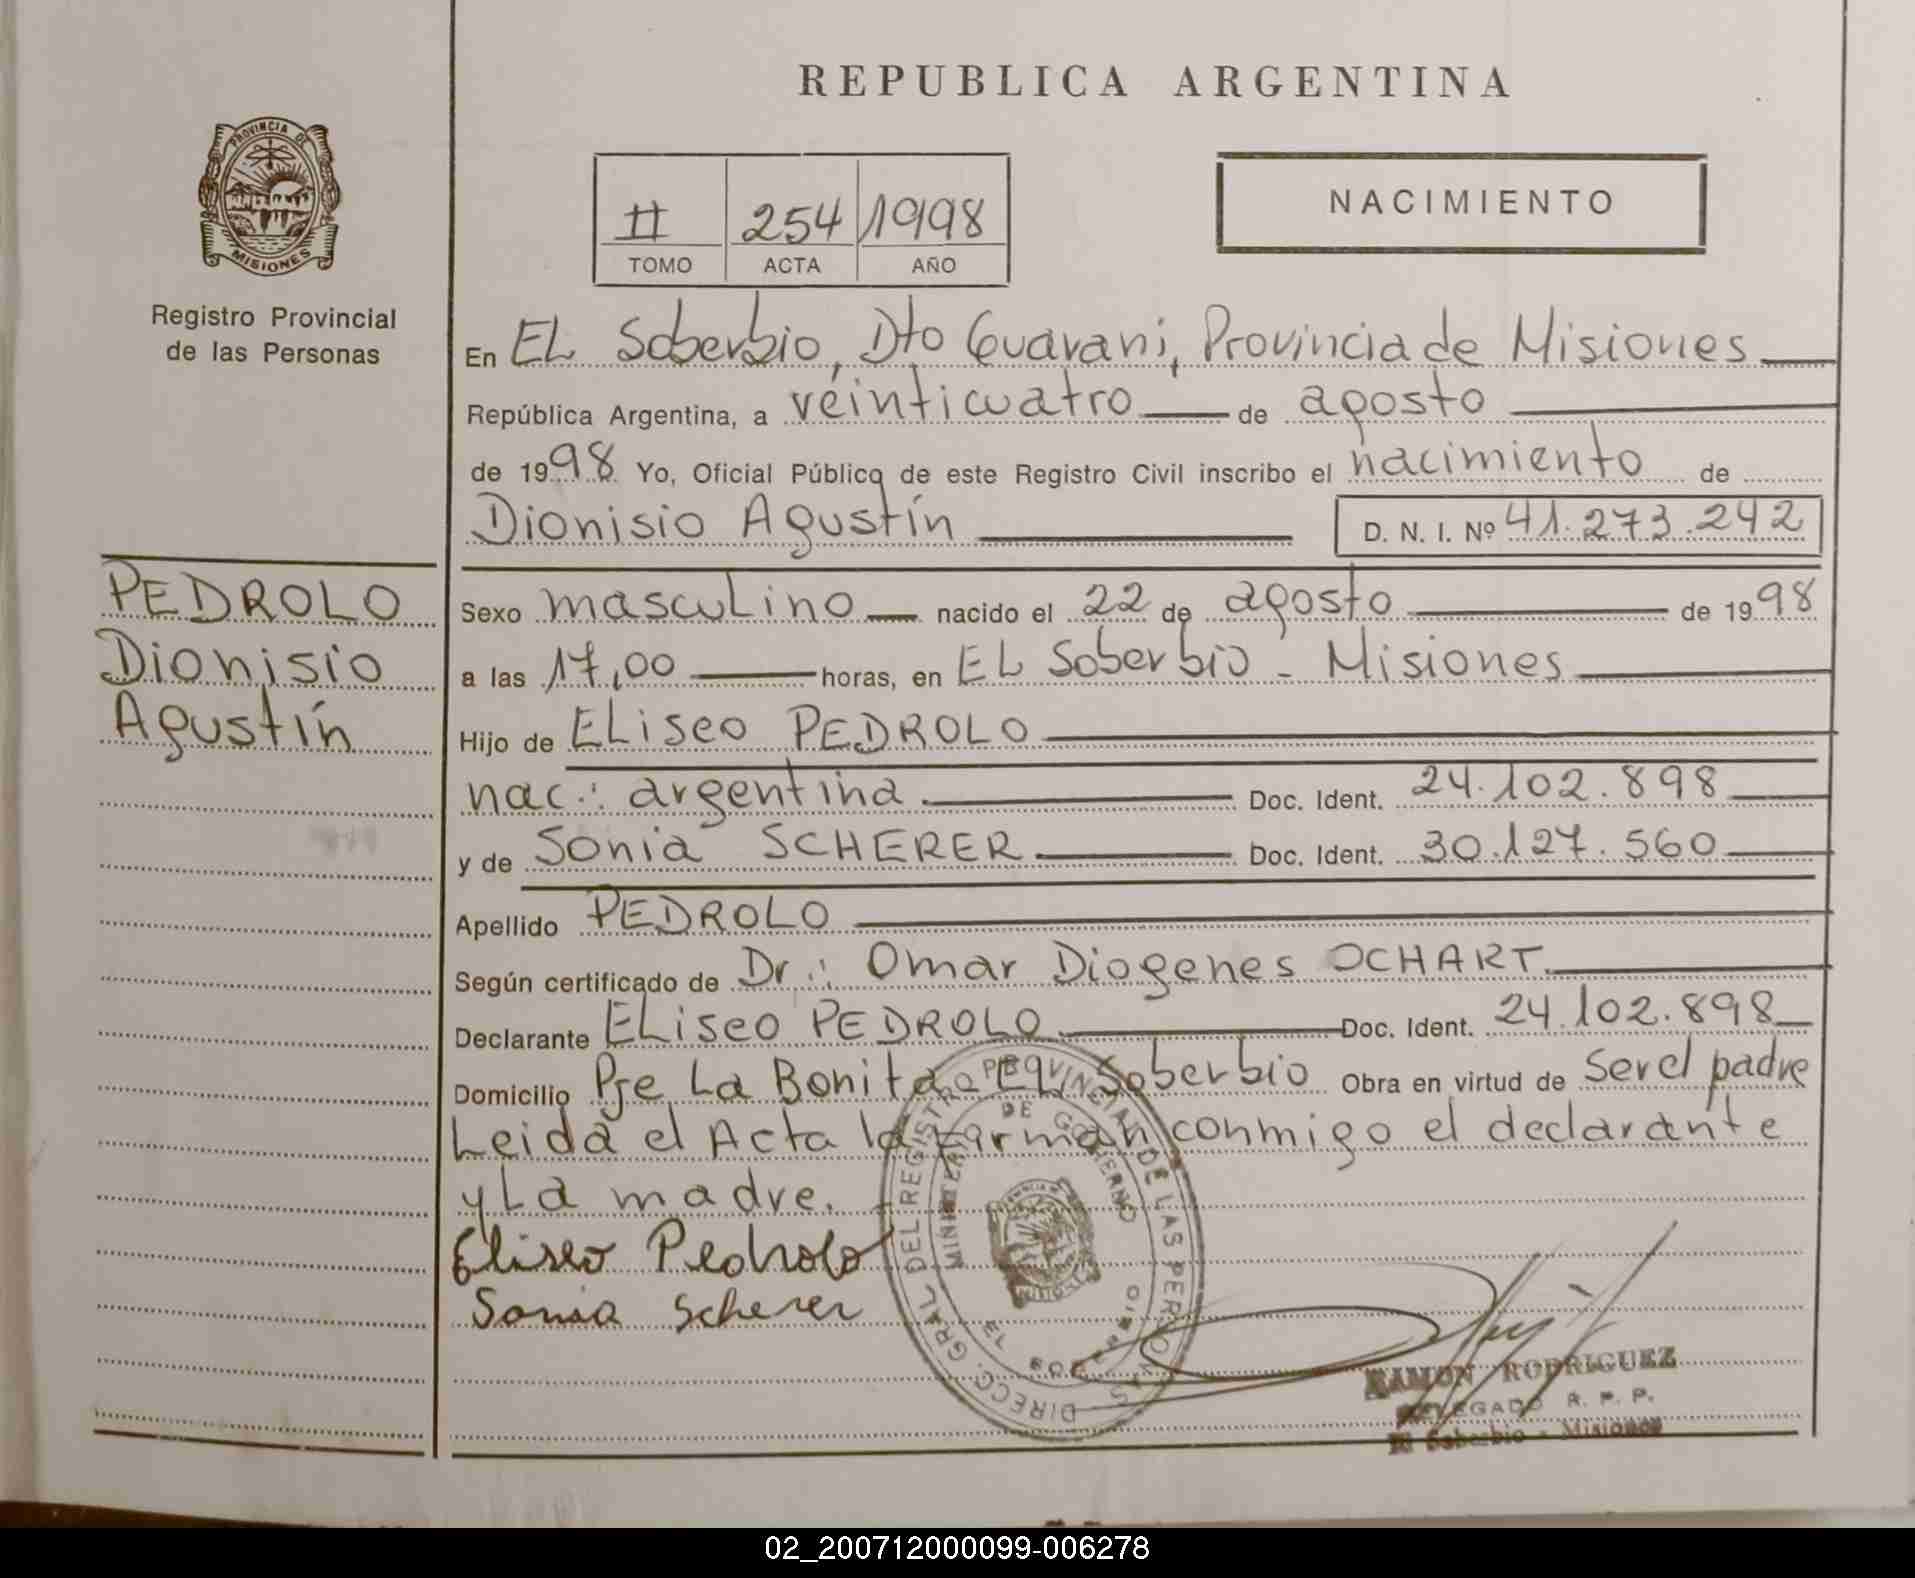 REPUBLICA ARGENTINA
PROVINCIA DE
MISIONES
Registro Provincial
de las Personas
II 254 1998
TOMO ACTA AÑO
NACIMIENTO
En EL Soberbio, Dto Guaraní, Provincia de Misiones
República Argentina, a veinticuatro de agosto
de 1998 Yo, Oficial Público de este Registro Civil inscribo el nacimiento de
Dionisio Agustín D. N. I. Nº 41.273.242
PEDROLO
Dionisio
Agustín
Sexo masculino nacido el 22 de agosto de 1998
a las 17,00 horas, en EL Soberbio - Misiones
Hijo de ELiseo PEDROLO
nac.: argentina Doc. Ident. 24.102.898
y de Sonia SCHERER Doc. Ident. 30.127.560
Apellido PEDROLO
Según certificado de Dr.: Omar Diogenes OCHART
Declarante ELiseo PEDROLO Doc. Ident. 24.102.898
Domicilio Pje La Bonita EL Soberbio Obra en virtud de Ser el padre
Leida el Acta la Firman conmigo el declarante
y La madre.
Eliseo Pedrolo
Sonia Scherer
DIRECC. GRAL DEL REGISTRO PROVINCIAL DE LAS PERSONAS
MINISTERIO DE GOBIERNO
RAMON RODRIGUEZ
DELEGADO R. P. P.
El Soberbio - Misiones
02_200712000099-006278